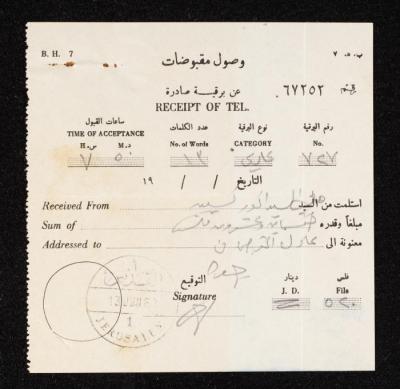 B. H. 7
ب. ه. ٧
وصول مقبوضات
عن برقية صادرة
رقم ٦٧٢٥٢
RECEIPT OF TEL.
ساعات القبول
عدد الكلمات
نوع البرقية
رقم البرقية
TIME OF ACCEPTANCE
No. of Words
CATEGORY
No.
H. س.
M. د.
٧
٥٠
١٣
عادي
٧٢٧
التاريخ / / ١٩
Received From
استلمت من السيد
Sum of
مبلغاً وقدره خمسماية وعشرون فلس
Addressed to
معنونة الى
القدس
JERUSALEM
1
التوقيع
Signature
دينار
J. D.
فلس
Fils
٥٢٠